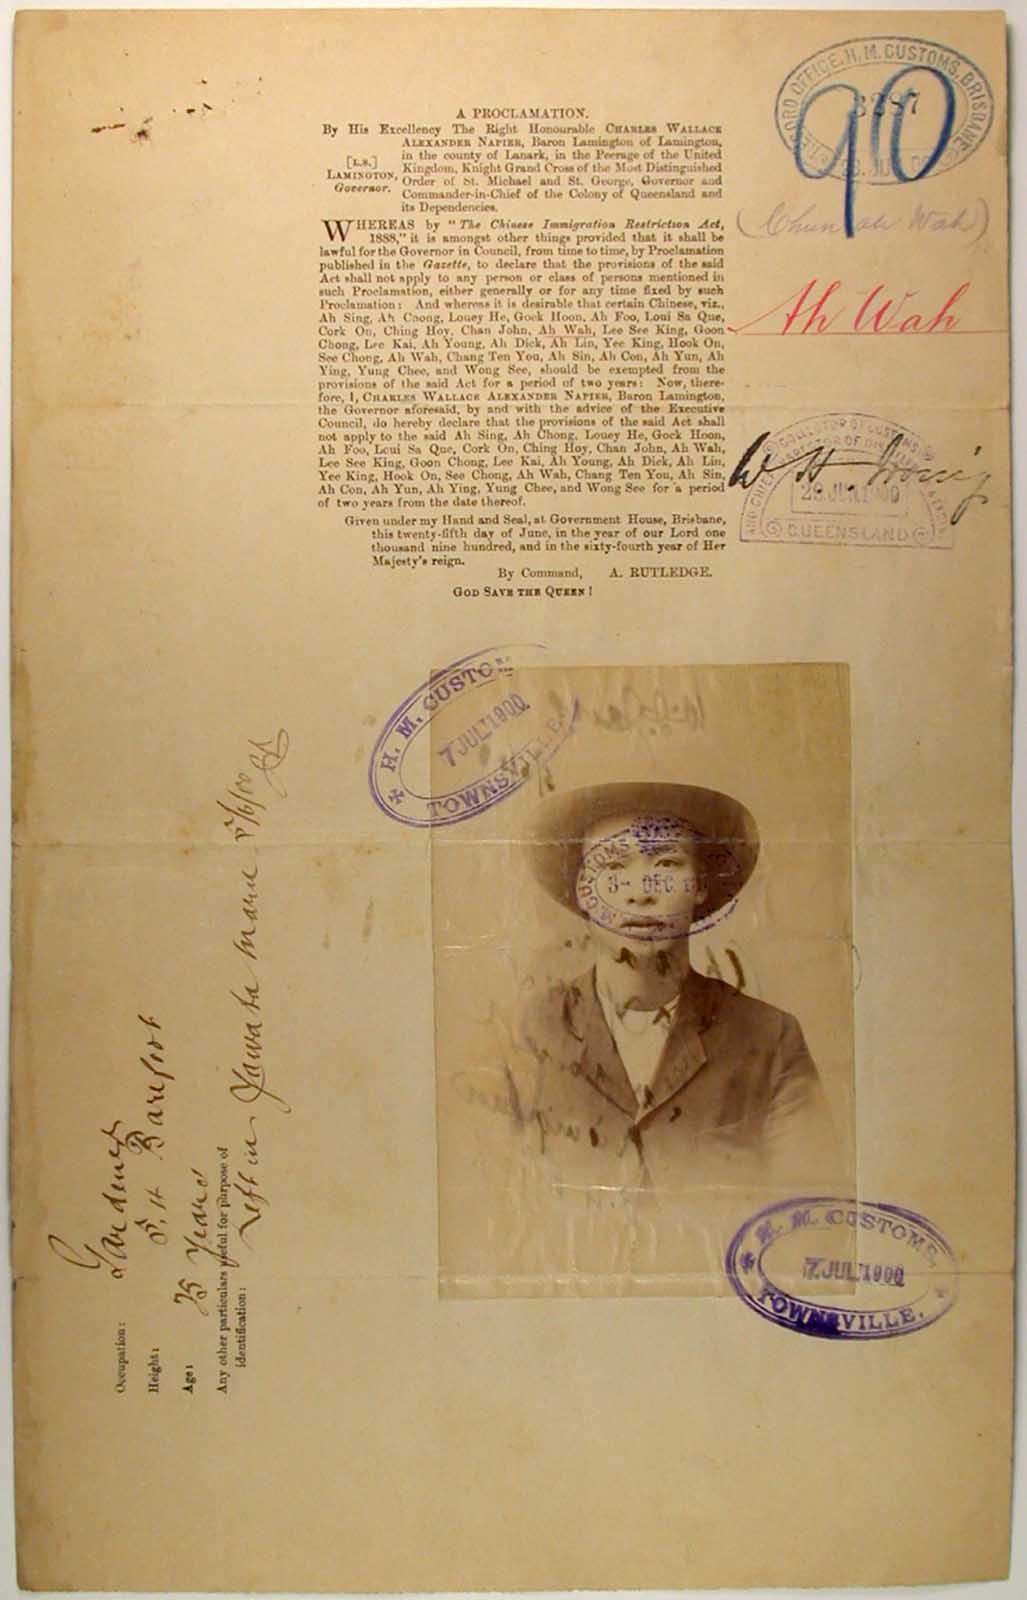 RECORD OFFICE, H. M. CUSTOMS, BRISBANE
3287
90
(Chun Ah Wah)
Ah Wah
A PROCLAMATION.
By His Excellency The Right Honourable CHARLES WALLACE
ALEXANDER NAPIER, Baron Lamington of Lamington,
in the county of Lanark, in the Peerage of the United
[L.S.]
Kingdom, Knight Grand Cross of the Most Distinguished
LAMINGTON,
Order of St. Michael and St. George, Governor and
Governor.
Commander-in-Chief of the Colony of Queensland and
its Dependencies.
WHEREAS by "The Chinese Immigration Restriction Act,
1888," it is amongst other things provided that it shall be
lawful for the Governor in Council, from time to time, by Proclamation
published in the Gazette, to declare that the provisions of the said
Act shall not apply to any person or class of persons mentioned in
such Proclamation, either generally or for any time fixed by such
Proclamation: And whereas it is desirable that certain Chinese, viz.,
Ah Sing, Ah Chong, Louey He, Gock Hoon, Ah Foo, Loui Sa Que,
Cork On, Ching Hoy, Chan John, Ah Wah, Lee See King, Goon
Chong, Lee Kai, Ah Young, Ah Dick, Ah Lin, Yee King, Hook On,
See Chong, Ah Wah, Chang Ten You, Ah Sin, Ah Con, Ah Yun, Ah
Ying, Yung Chee, and Wong See, should be exempted from the
provisions of the said Act for a period of two years: Now, there-
fore, I, CHARLES WALLACE ALEXANDER NAPIER, Baron Lamington,
the Governor aforesaid, by and with the advice of the Executive
Council, do hereby declare that the provisions of the said Act shall
not apply to the said Ah Sing, Ah Chong, Louey He, Gock Hoon,
Ah Foo, Loui Sa Que, Cork On, Ching Hoy, Chan John, Ah Wah,
Lee See King, Goon Chong, Lee Kai, Ah Young, Ah Dick, Ah Lin,
Yee King, Hook On, See Chong, Ah Wah, Chang Ten You, Ah Sin,
Ah Con, Ah Yun, Ah Ying, Yung Chee, and Wong See for a period
of two years from the date thereof.
Given under my Hand and Seal, at Government House, Brisbane,
this twenty-fifth day of June, in the year of our Lord one
thousand nine hundred, and in the sixty-fourth year of Her
Majesty's reign.
By Command, A. RUTLEDGE.
GOD SAVE THE QUEEN!
COLLECTOR OF CUSTOMS
28 JUN 1900
QUEENSLAND
W. H. Irving
H. M. CUSTOMS
7 JUL 1900
TOWNSVILLE.
CUSTOMS
3- DEC
H. M. CUSTOMS,
7 JUL 1900
TOWNSVILLE.
Occupation: Gardener
Height: 5. 4 Barefoot
Age: 25 Years
Any other particulars useful for purpose of
identification: Left in Yawata Maru 5/6/00